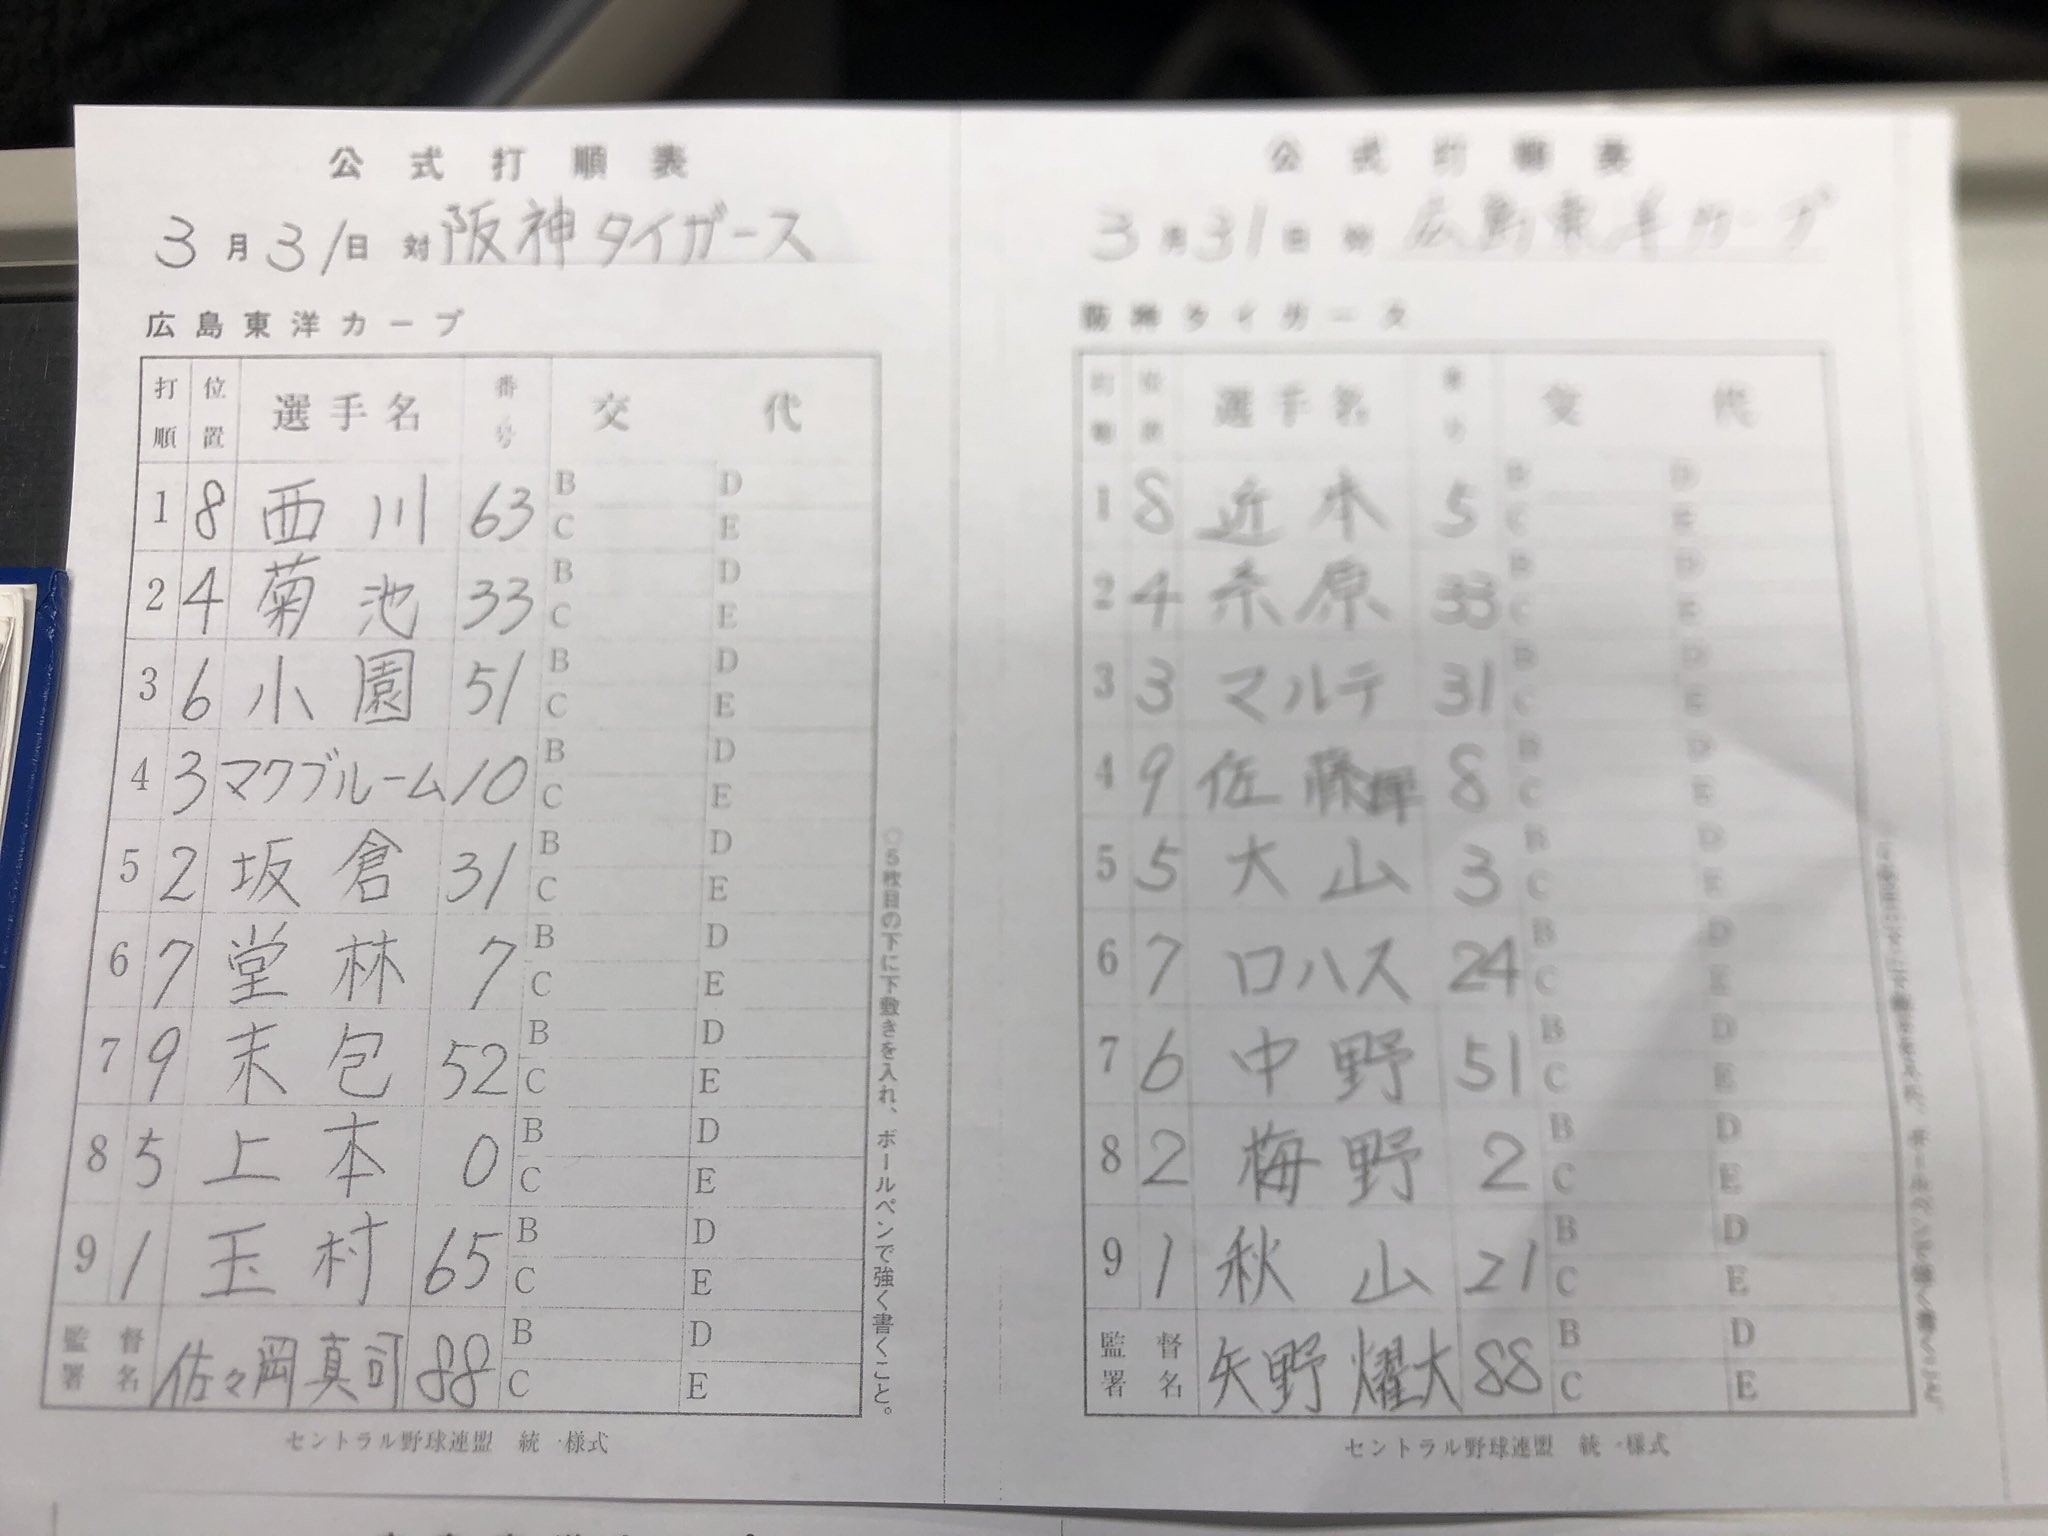 公式打順表
3月31日 対 阪神タイガース
広島東洋カープ
打順 位置 選手名 番号 交代
1 8 西川 63 B C D E
2 4 菊池 33 B C D E
3 6 小園 51 B C D E
4 3 マクブルーム 10 B C D E
5 2 坂倉 31 B C D E
6 7 堂林 7 B C D E
7 9 末包 52 B C D E
8 5 上本 0 B C D E
9 1 玉村 65 B C D E
監督署名 佐々岡真司 88 B C D E
○5枚目の下に下敷きを入れ、ボールペンで強く書くこと。
セントラル野球連盟 統一様式
公式打順表
3月31日 対 広島東洋カープ
阪神タイガース
打順 位置 選手名 番号 交代
1 8 近本 5 B C D E
2 4 糸原 33 B C D E
3 3 マルテ 31 B C D E
4 9 佐藤輝 8 B C D E
5 5 大山 3 B C D E
6 7 ロハス 24 B C D E
7 6 中野 51 B C D E
8 2 梅野 2 B C D E
9 1 秋山 21 B C D E
監督署名 矢野燿大 88 B C D E
ボールペンで強く書くこと。
セントラル野球連盟 統一様式